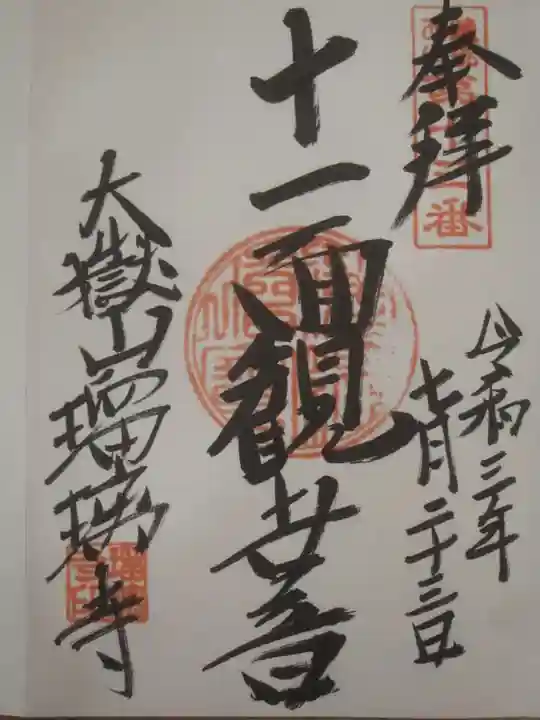 奉拝
令和三年
七月二十三日
十一面観世音
大嶽山瑠璃寺